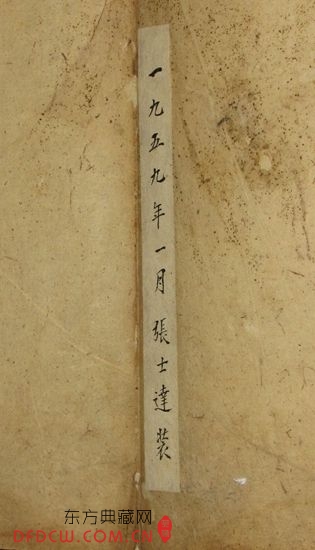 一九五九年一月張士達裝
东方典藏网
DFDCW.COM.CN